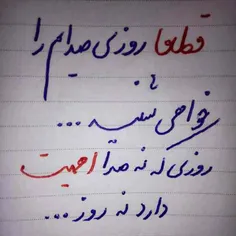 قطعا روزی صدایم را
خواهی شنید ...
روزی که نه صدا اهمیت
دارد نه روز ...